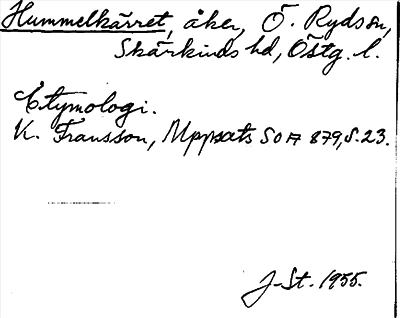 Hummelkärret, åker, Ö. Ryds sn,
Skärkinds hd, Östg. l.
Etymologi.
K. Fransson, Uppsats SOA 879, S. 23.
J-St. 1955.